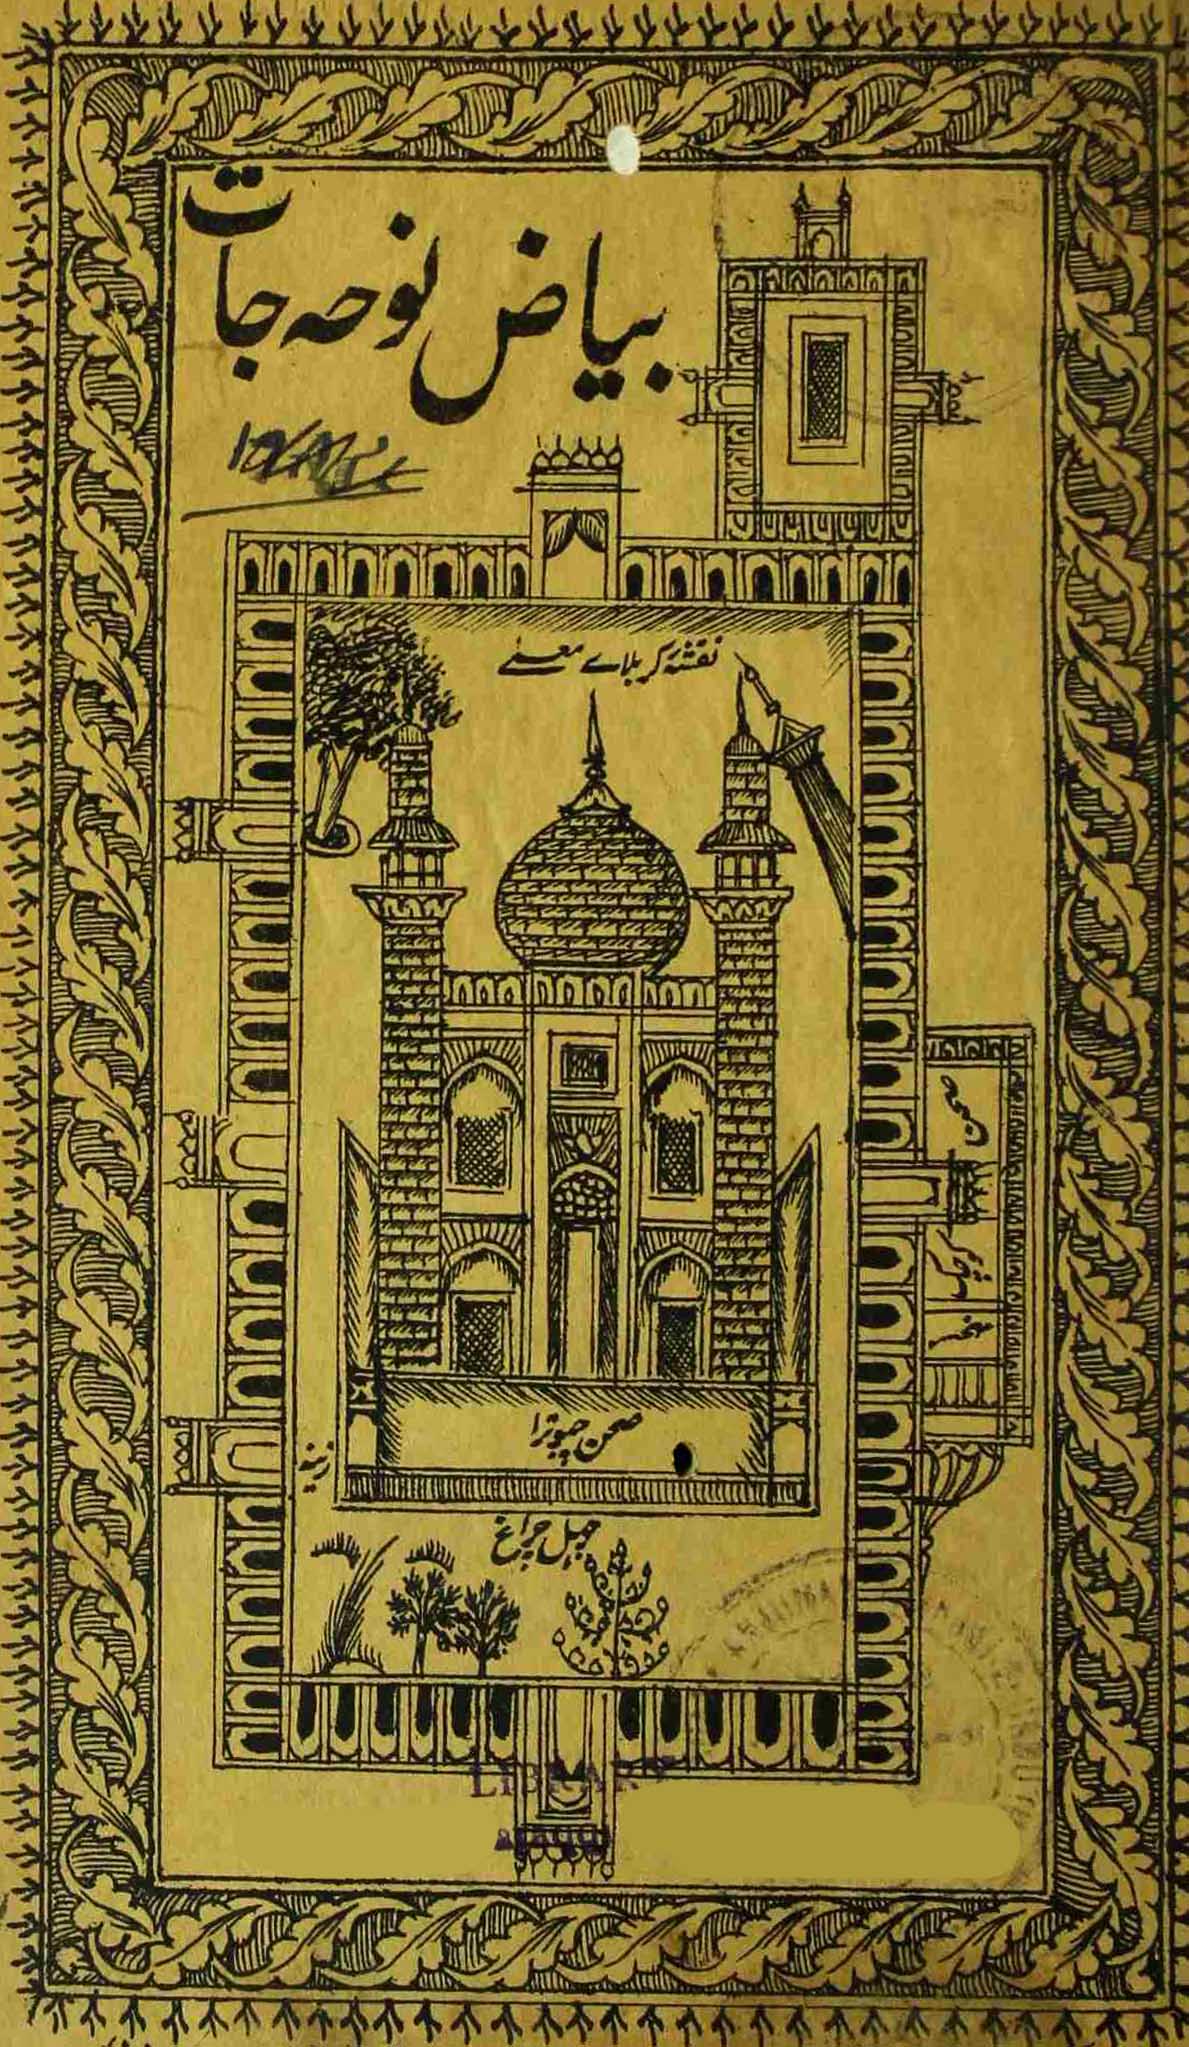 بیاض نوحہ جات
نقشہ کربلائے معلےٰ
صحن
کوچک
صحن چبوترا
زینہ
چہل چراغ
LIBRARY